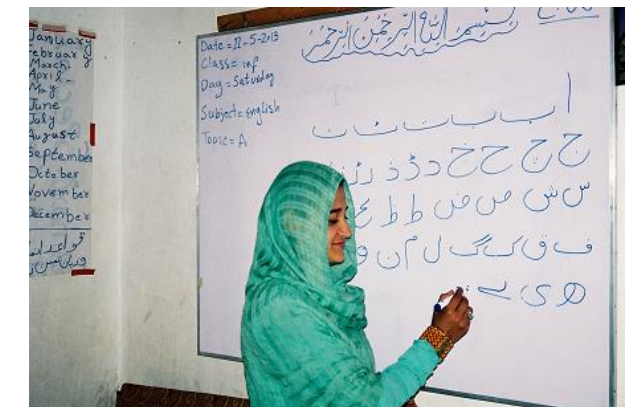 January
February
March
April
May
June
July
August
September
October
November
December
قواعد
Date = 22-5-2013
Class = inp
Day = Saturday
Subject = English
Topic = A
بسم الله الرحمن الرحيم
ا ب پ ت ٹ ث
ج چ ح خ د ڈ ذ ر ڑ ز
س ش ص ض ط ظ ع
ف ق ک گ ل م ن و
ھ ی ے